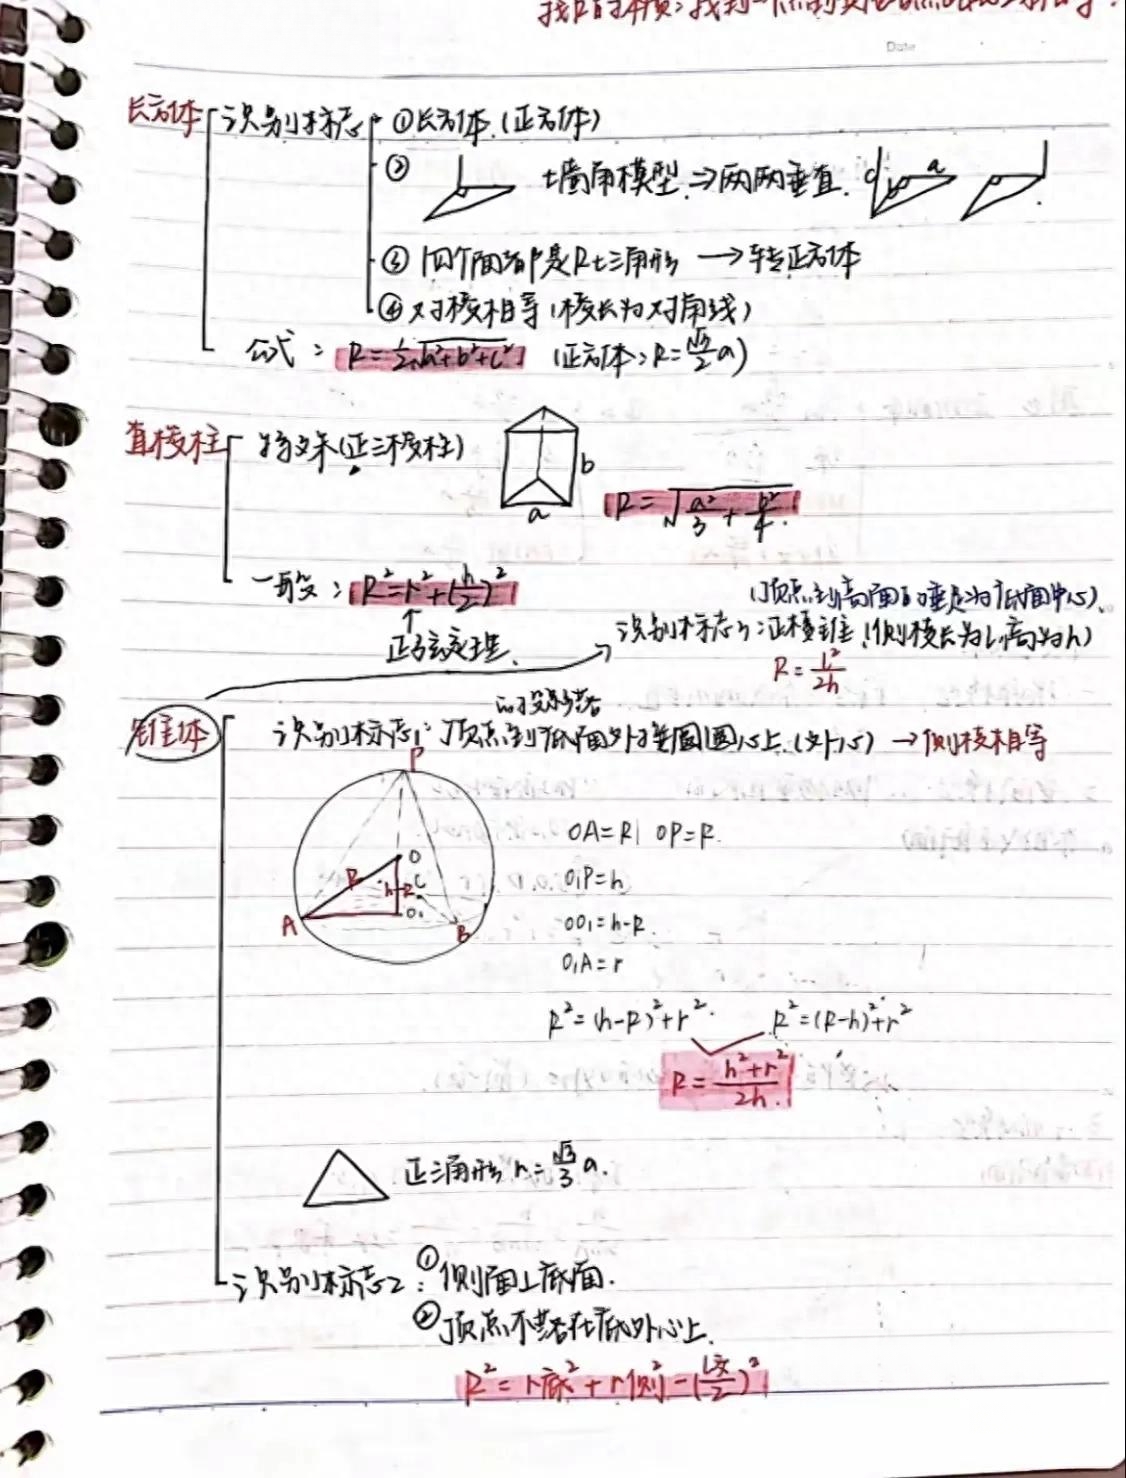 Date
长方体 识别标志 ①长方体.(正方体)
② 墙角模型.⇒两两垂直. c a
③ 四个面都是Rt三角形 → 转正方体
④对棱相等(棱长为对角线)
公式: R=½√a²+b²+c² (正方体:R=√3/2 a)
直棱柱 特殊(正三棱柱)
b
a
R=√a²/3+b²/4.
一般: R²=r²+(h/2)²
正弦定理.
(顶点到底面的垂足为底面中心).
识别标志3:正棱锥(侧棱长为l,高为h)
R=l²/2h
的投影落
锥体 识别标志1:顶点到底面外接圆圆心上.(外心) → 侧棱相等
P
OA=R OP=R.
O
R h-R C
O₁P=h
O₁
A B
OO₁=h-R.
O₁A=r
R²=(h-R)²+r². R²=(R-h)²+r²
R=h²+r²/2h.
正三角形r=√3/3 a.
识别标志2: ①侧面⊥底面.
②顶点不落在底外心上.
R²=r底²+r侧²-(l交/2)²